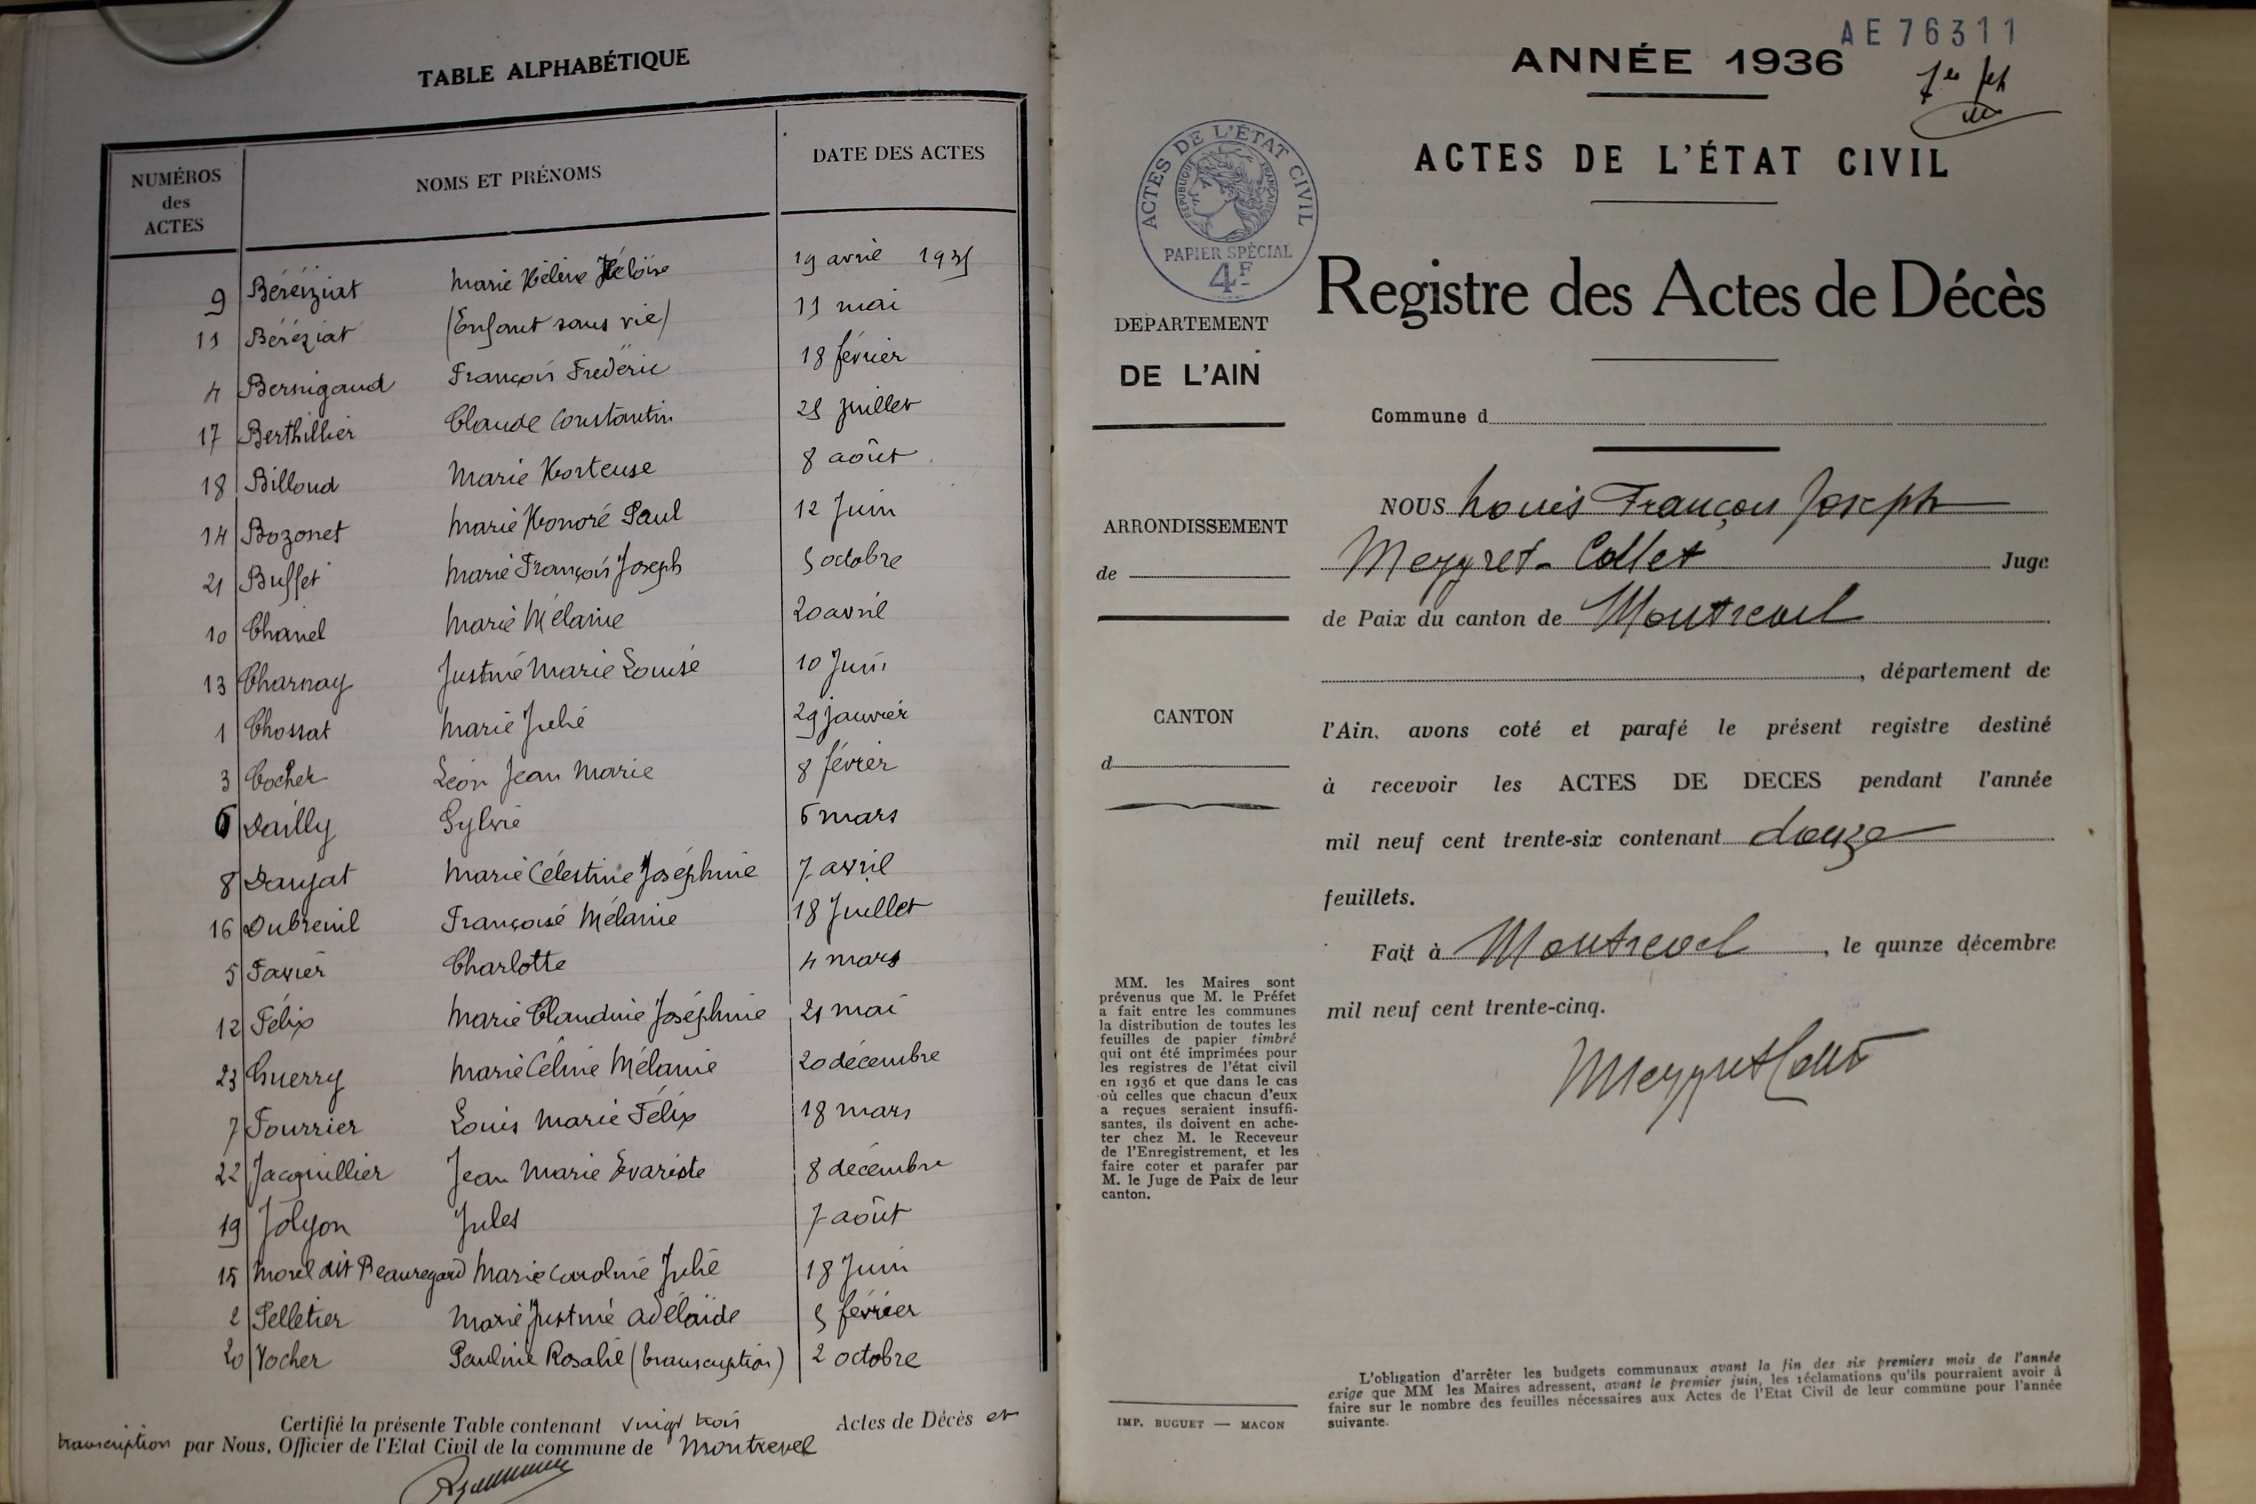 TABLE ALPHABÉTIQUE
NUMÉROS des ACTES
NOMS ET PRÉNOMS
DATE DES ACTES
9 Béréziat Marie Hélène Héloïse 19 avril 1935
11 Béréziat (Enfant sans vie) 11 mai
4 Bernigaud François Frédéric 18 février
17 Berthillier Claude Constantin 25 Juillet
18 Billoud Marie Hortense 8 août
14 Bozonet Marie Honoré Paul 12 Juin
21 Buffet Marie François Joseph 5 octobre
10 Chanel Marie Mélanie 20 avril
13 Charnay Justine Marie Louise 10 Juin
1 Chossat Marie Julie 29 janvier
3 Cocher Léon Jean Marie 8 février
6 Dailly Sylvie 6 mars
8 Daujat Marie Célestine Joséphine 7 avril
16 Dubreuil Françoise Mélanie 18 Juillet
5 Favier Charlotte 4 mars
12 Félix Marie Claudine Joséphine 21 mai
23 Guerry Marie Céline Mélanie 20 décembre
7 Fourrier Louis Marie Félix 18 mars
22 Jacquillier Jean Marie Evariste 8 décembre
19 Jolyon Jules 7 août
15 Morel dit Beauregard Marie Caroline Julie 18 Juin
2 Pelletier Marie Justine Adélaïde 5 février
20 Vocher Pauline Rosalie (transcription) 2 octobre
Certifié la présente Table contenant vingt trois Actes de Décès et
transcription par Nous, Officier de l'Etat Civil de la commune de Montrevel
AE 76311
ANNÉE 1936
ACTES DE L'ÉTAT CIVIL
ACTES DE L'ÉTAT CIVIL
RÉPUBLIQUE FRANÇAISE
PAPIER SPÉCIAL
4F
Registre des Actes de Décès
DEPARTEMENT
DE L'AIN
Commune d
ARRONDISSEMENT
de
CANTON
d
NOUS Louis François Joseph
Meygret-Collet Juge
de Paix du canton de Montrevel
, département de
l'Ain, avons coté et parafé le présent registre destiné
à recevoir les ACTES DE DECES pendant l'année
mil neuf cent trente-six contenant douze
feuillets.
Fait à Montrevel, le quinze décembre
mil neuf cent trente-cinq.
Meygret Collet
MM. les Maires sont
prévenus que M. le Préfet
a fait entre les communes
la distribution de toutes les
feuilles de papier timbré
qui ont été imprimées pour
les registres de l'état civil
en 1936 et que dans le cas
où celles que chacun d'eux
a reçues seraient insuffi-
santes, ils doivent en ache-
ter chez M. le Receveur
de l'Enregistrement, et les
faire coter et parafer par
M. le Juge de Paix de leur
canton.
IMP. BUGUET — MACON
L'obligation d'arrêter les budgets communaux avant la fin des six premiers mois de l'année
exige que MM les Maires adressent, avant le premier juin, les réclamations qu'ils pourraient avoir à
faire sur le nombre des feuilles nécessaires aux Actes de l'Etat Civil de leur commune pour l'année
suivante.